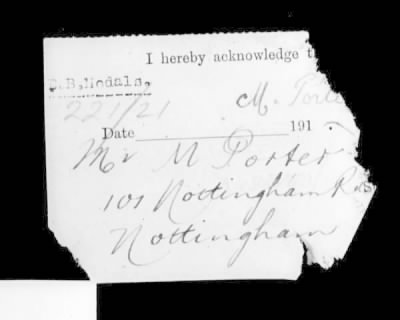 I hereby acknowledge t
B, Medals,
221/21 M. Porte
Date 191
Mr M Porter
101 Nottingham R
Nottingham